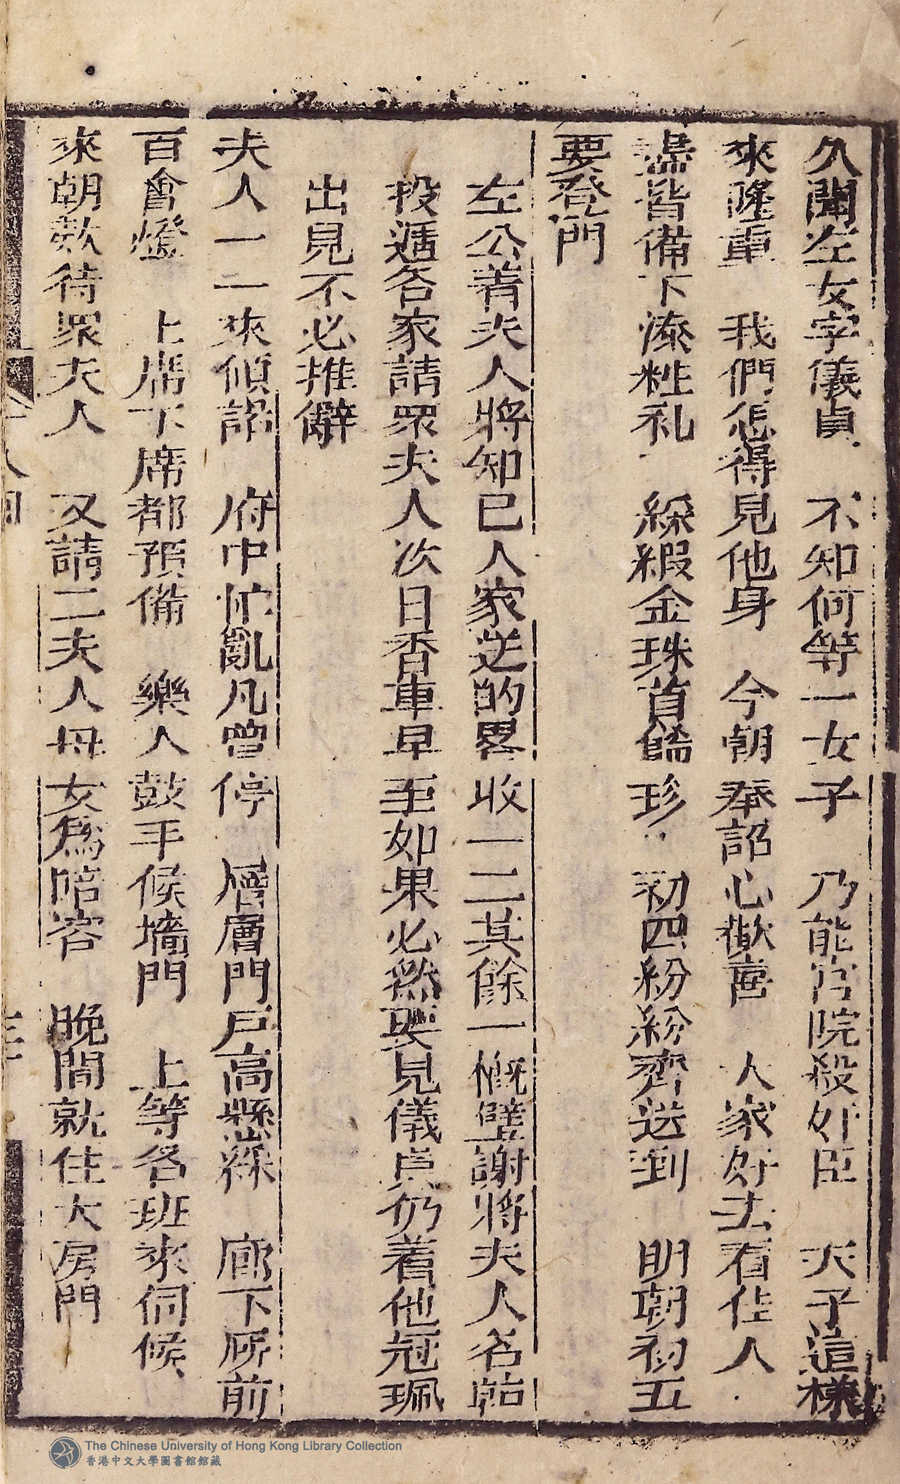 久聞左女字儀貞 不知何等一女子 乃能宮院殺奸臣 天子這樣
來隆重 我們怎得見他身 今朝奉詔心歡喜 人家好去看佳人
盡皆備下潦粧礼 綵緞金珠首餙珍 初四紛紛齊送到 明朝初五
要登門
左公着夫人將知己人家送的畧收一二其餘一概璧謝將夫人名帖
投遞各家請眾夫人次日香車早至如果必然要見儀貞仍着他冠珮
出見不必推辭
夫人一一來傾訟 府中忙亂凡曾停 層層門戶高懸綵 廊下所前
百會燈 上席下席都預備 樂人鼓手候墻門 上等各班來伺候
來朝欵待眾夫人 又請二夫人母女為陪客 晚間就住大房門
The Chinese University of Hong Kong Library Collection
香港中文大學圖書館館藏